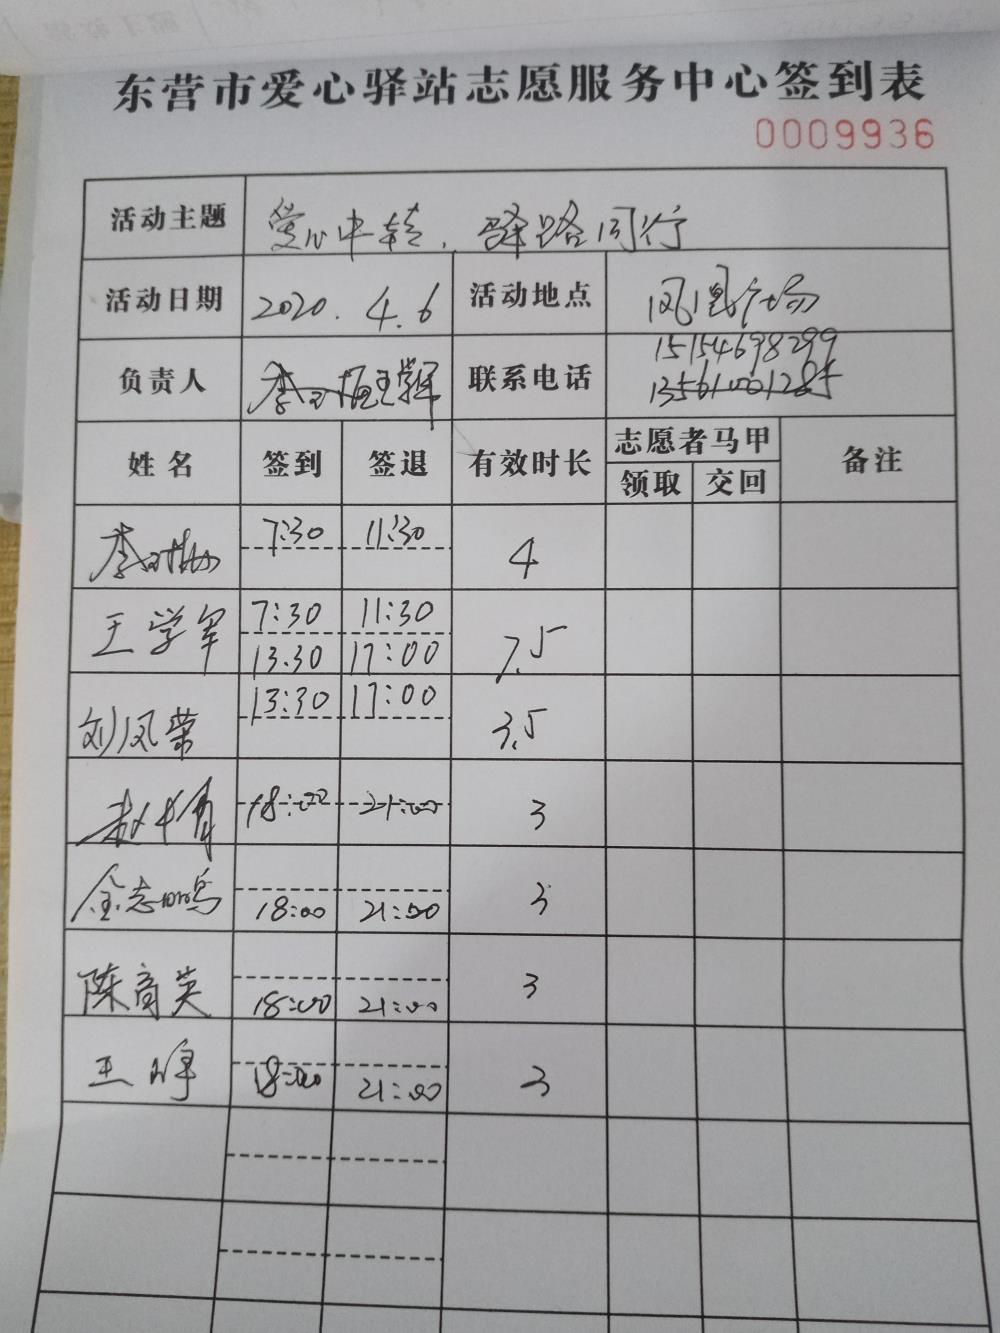 东营市爱心驿站志愿服务中心签到表
0009936
活动主题 爱心中转，驿路同行
活动日期 2020.4.6 活动地点 凤凰广场
负责人 联系电话 15154698299
姓名 签到 签退 有效时长 志愿者马甲 备注
领取 交回
7:30 11:30 4
王学军 7:30 11:30 7.5
13.30 17:00
刘凤荣 13:30 17:00 3.5
18:00 21:00 3
金志鸣 18:00 21:00 3
陈育英 18:00 21:00 3
王峰 18:00 21:00 3